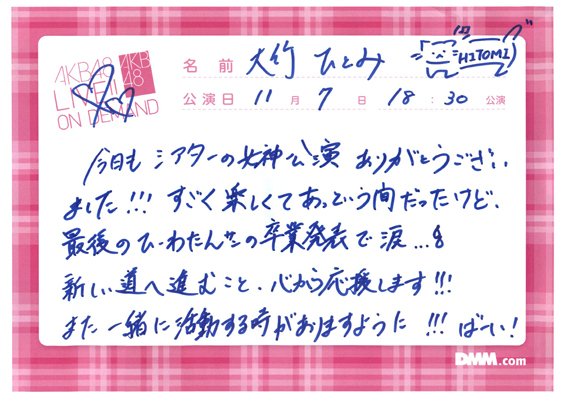 AKB48
AKB
48
LIVE!!
ON DEMAND
名前 大竹 ひとみ
HITOMI
公演日 11月7日 18:30公演
今日も シアターの女神公演 ありがとうござい
ました!!! すごく楽しくてあっという間だったけど、
最後のひーわたんサンの卒業発表で涙...
新しい道へ進むこと、心から応援します!!!
また一緒に活動する時がありますように!!! ばーい!
DMM.com